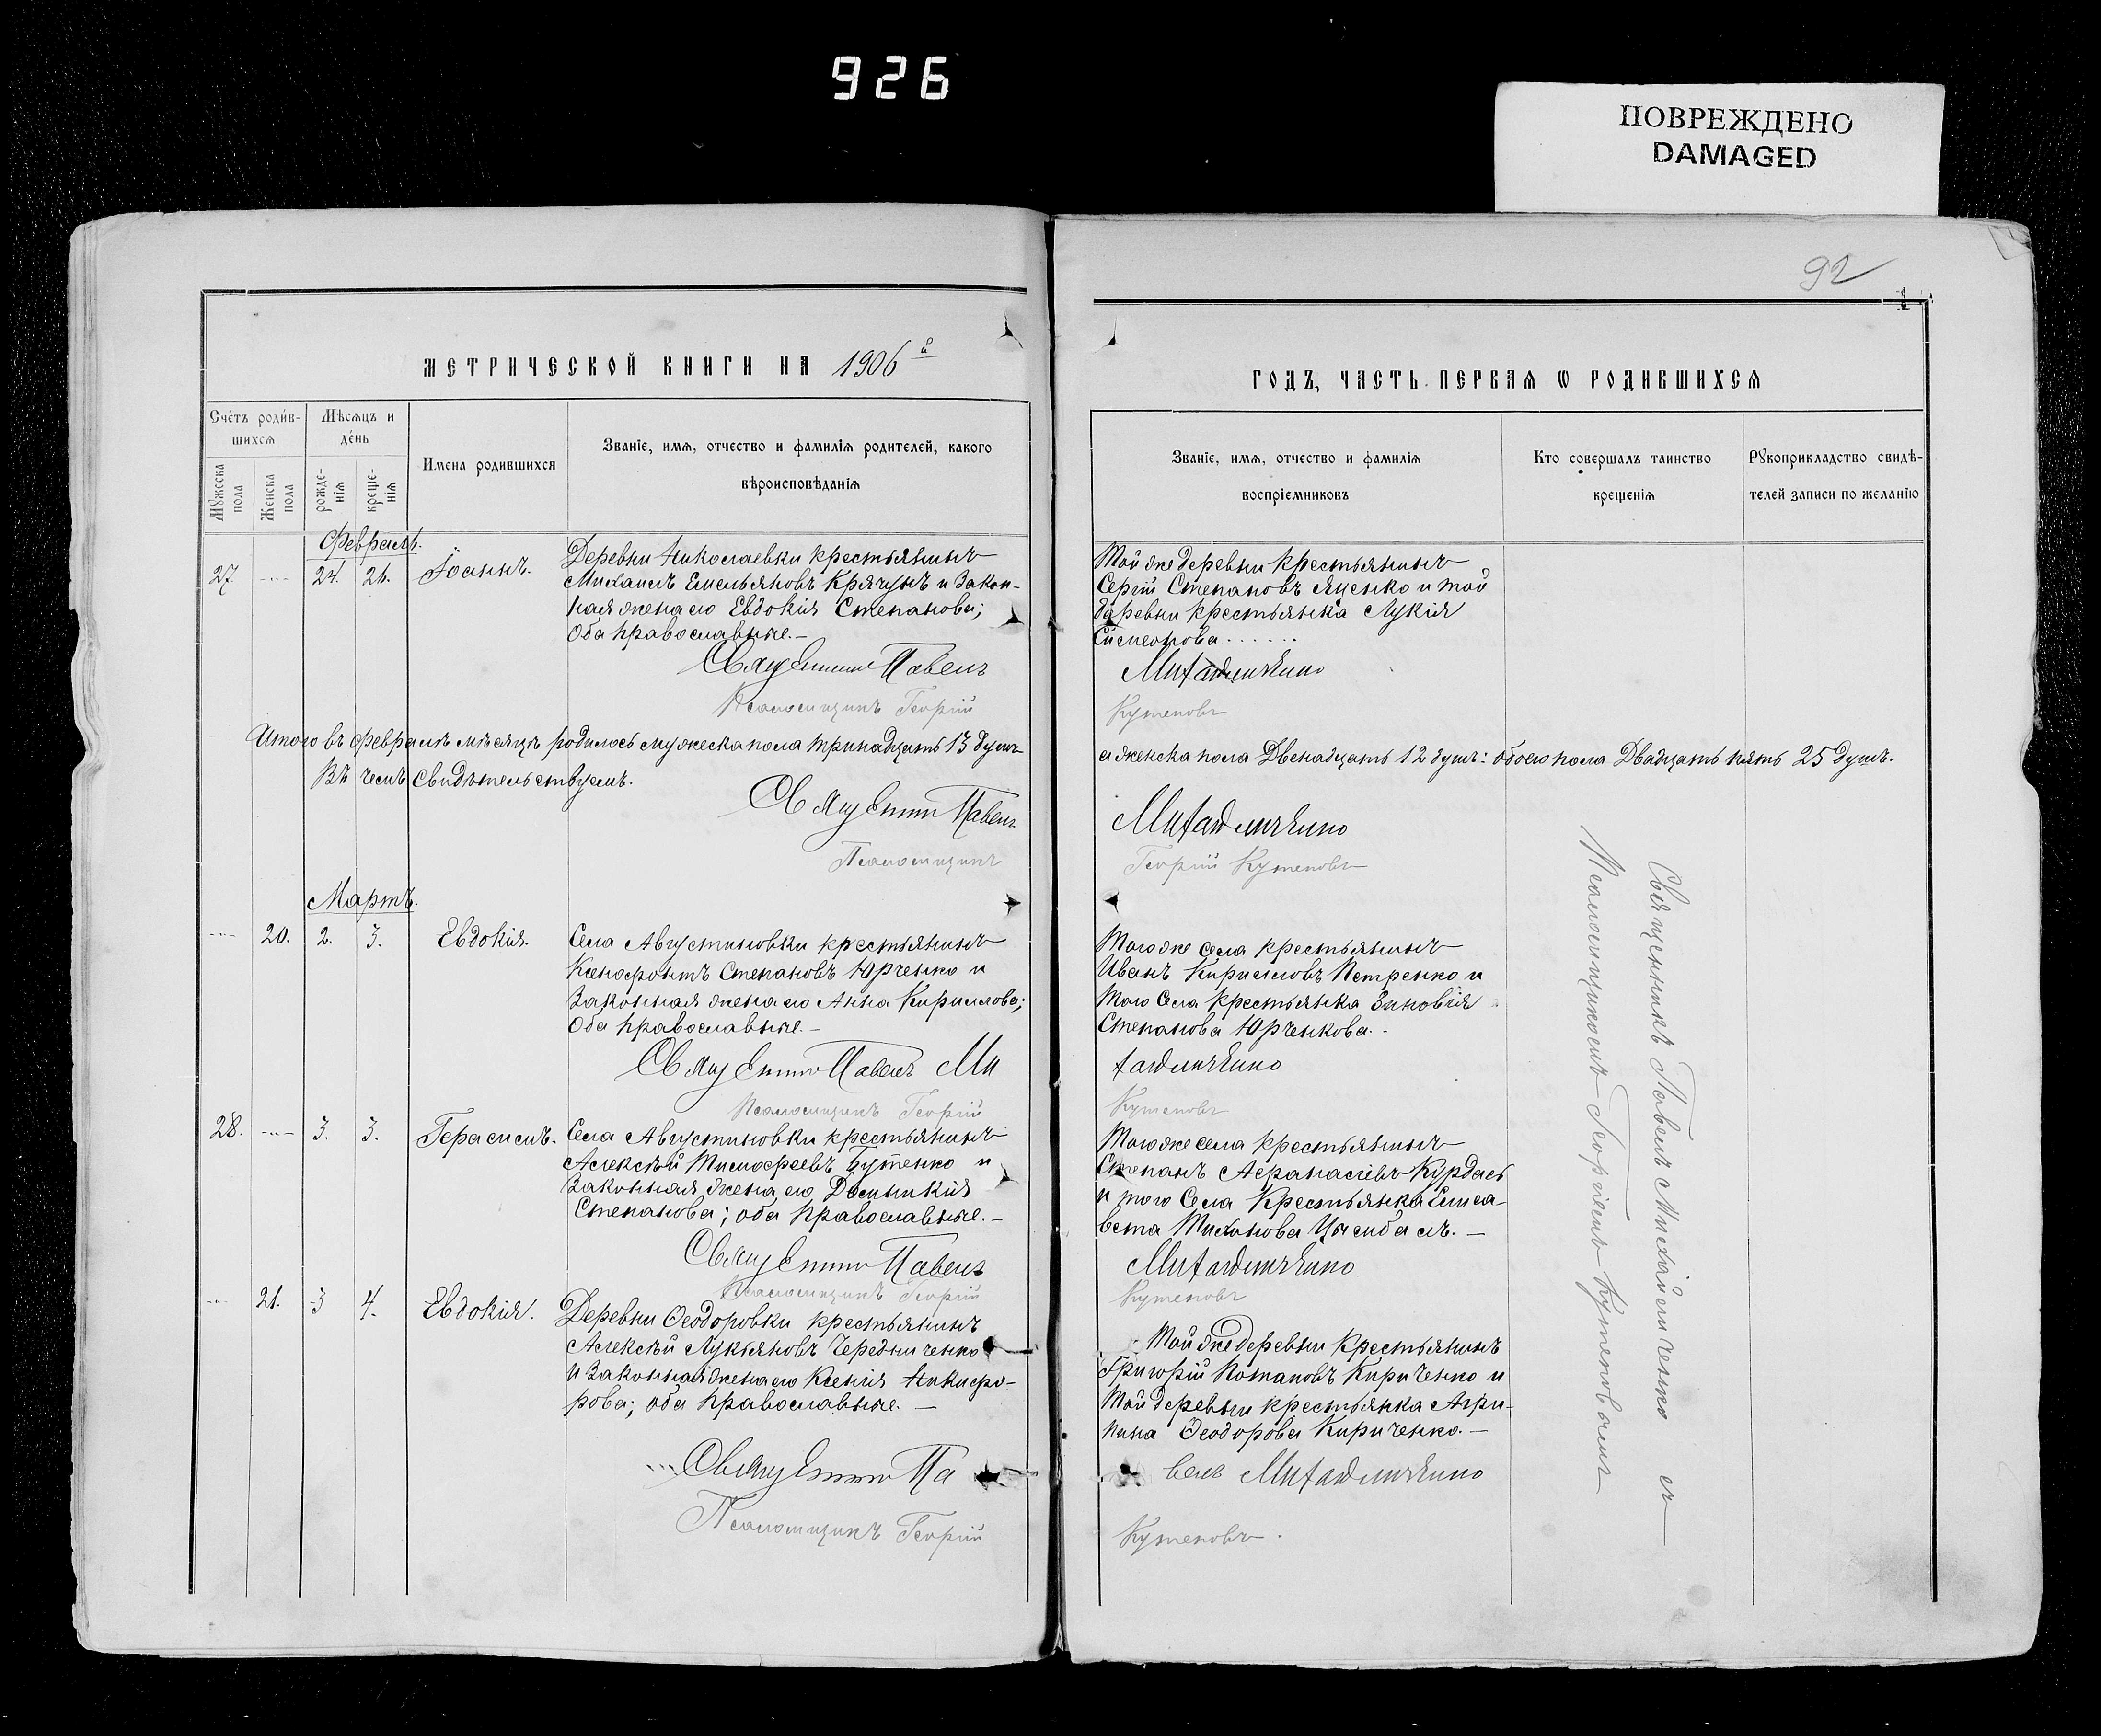 926
ПОВРЕЖДЕНО
DAMAGED
92
МЕТРИЧЕСКОЙ КНИГИ НА 1906й
Счетъ родив-
шихся
Мѣсяцъ и
день
Мужеска
пола
Женска
пола
рожде-
нія
креще-
нія
Имена родившихся
Званіе, имя, отчество и фамилія родителей, какого
вѣроисповѣданія
Февраль.
27 24. 26. Іоаннъ.
Деревни Николаевки крестьянинъ
Михаилъ Емельяновъ Крячунъ и закон-
ная жена его Евдокія Степанова;
оба православные.
Священникъ Павелъ
Псаломщикъ Георгій
Итого въ Февралѣ мѣсяцѣ родилось мужеска пола тринадцать 13 душъ
Въ чемъ свидѣтельствуемъ.
Священникъ Павелъ
Псаломщикъ
Мартъ.
20. 2. 3. Евдокія.
Села Августиновки крестьянинъ
Ксенофонтъ Степановъ Юрченко и
законная жена его Анна Кириллова;
оба православные.
Священникъ Павелъ Ми
Псаломщикъ Георгій
28. 3. 3. Герасимъ.
Села Августиновки крестьянинъ
Алексѣй Тимофеевъ Бутенко и
законная жена его Домникія
Степанова; оба православные.
Священникъ Павелъ
Псаломщикъ Георгій
21. 3 4. Евдокія.
Деревни Ѳеодоровки крестьянинъ
Алексѣй Лукьяновъ Чередниченко
и законная жена его Ксенія Никифо-
рова; оба православные.
Священникъ Па
Псаломщикъ Георгій
ГОДЪ, ЧАСТЬ ПЕРВАЯ Ѡ РОДИВШИХСЯ
Званіе, имя, отчество и фамилія
воспріемниковъ
Кто совершалъ таинство
крещенія
Рукоприкладство свидѣ-
телей записи по желанію
Той же деревни крестьянинъ
Сергій Степановъ Яценко и той
деревни крестьянка Лукія
Симеонова
Михайличенко
Кутеповъ
а женска пола Двенадцать 12 душъ: обоего пола Двадцать пять 25 душъ.
Михайличенко
Георгій Кутеповъ
Того же села крестьянинъ
Иванъ Кирилловъ Петренко и
того села крестьянка Зиновія
Степанова Юрченкова.
хайличенко
Кутеповъ
Того же села крестьянинъ
Степанъ Афанасіевъ Курдась
и того села крестьянка Елиса-
вета
Михайличенко
Кутеповъ
Той же деревни крестьянинъ
Григорій Потаповъ Кириченко и
той деревни крестьянка Агри-
пина Ѳеодорова Кириченко.
велъ Михайличенко
Кутеповъ.
Священникъ Павелъ Михайличенко съ
Псаломщикомъ Георгіемъ Кутеповымъ